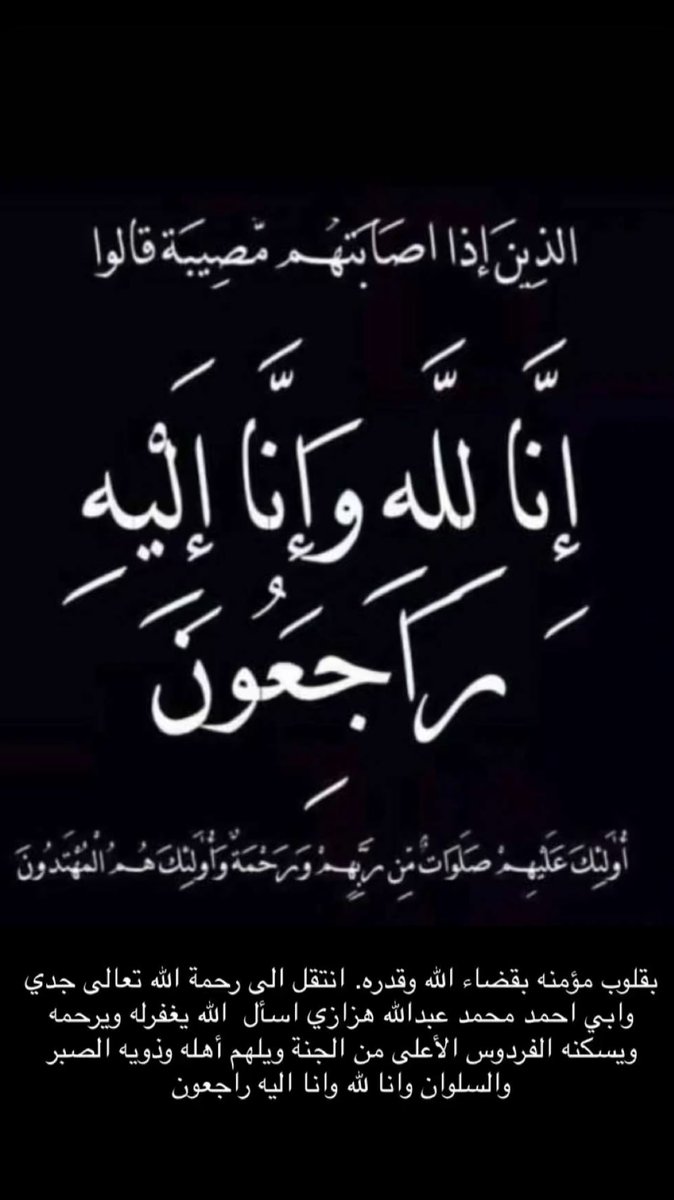 الذِينَ إذا اصَابَتهُم مّصِيبَة قالوا
إِنَّا للَّه وَإِنَّا إِلَيْهِ
رَاجِعُونَ
أُولَئِكَ عَلَيْهِمْ صَلَوَاتٌ مِّن رَّبِّهِمْ وَرَحْمَةٌ وَأُولَئِكَ هُمُ الْمُهْتَدُونَ
بقلوب مؤمنه بقضاء الله وقدره. انتقل الى رحمة الله تعالى جدي
وابي احمد محمد عبدالله هزازي اسأل الله يغفرله ويرحمه
ويسكنه الفردوس الأعلى من الجنة ويلهم أهله وذويه الصبر
والسلوان وانا لله وانا اليه راجعون